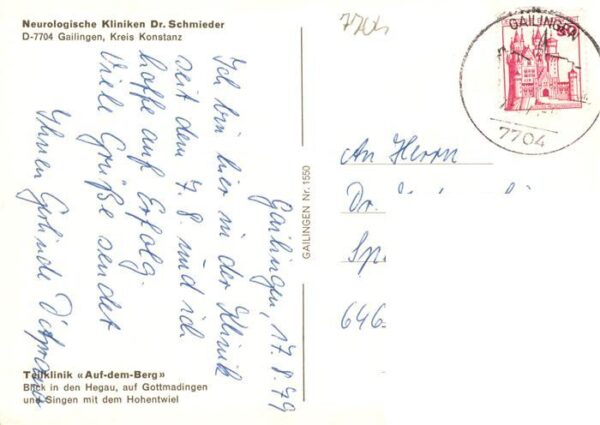 Neurologische Kliniken Dr. Schmieder
D-7704 Gailingen, Kreis Konstanz
Gailingen, 17.8.79
Ich bin hier in der Klinik
seit dem 7.8 und ich
hoffe auf Erfolg.
Viele Grüße sendet
Ihnen Gerlinde
Teilklinik «Auf-dem-Berg»
Blick in den Hegau, auf Gottmadingen
und Singen mit dem Hohentwiel
GAILINGEN Nr. 1550
7704
GAILINGEN
7704
An Herrn
Dr.
Sp
646